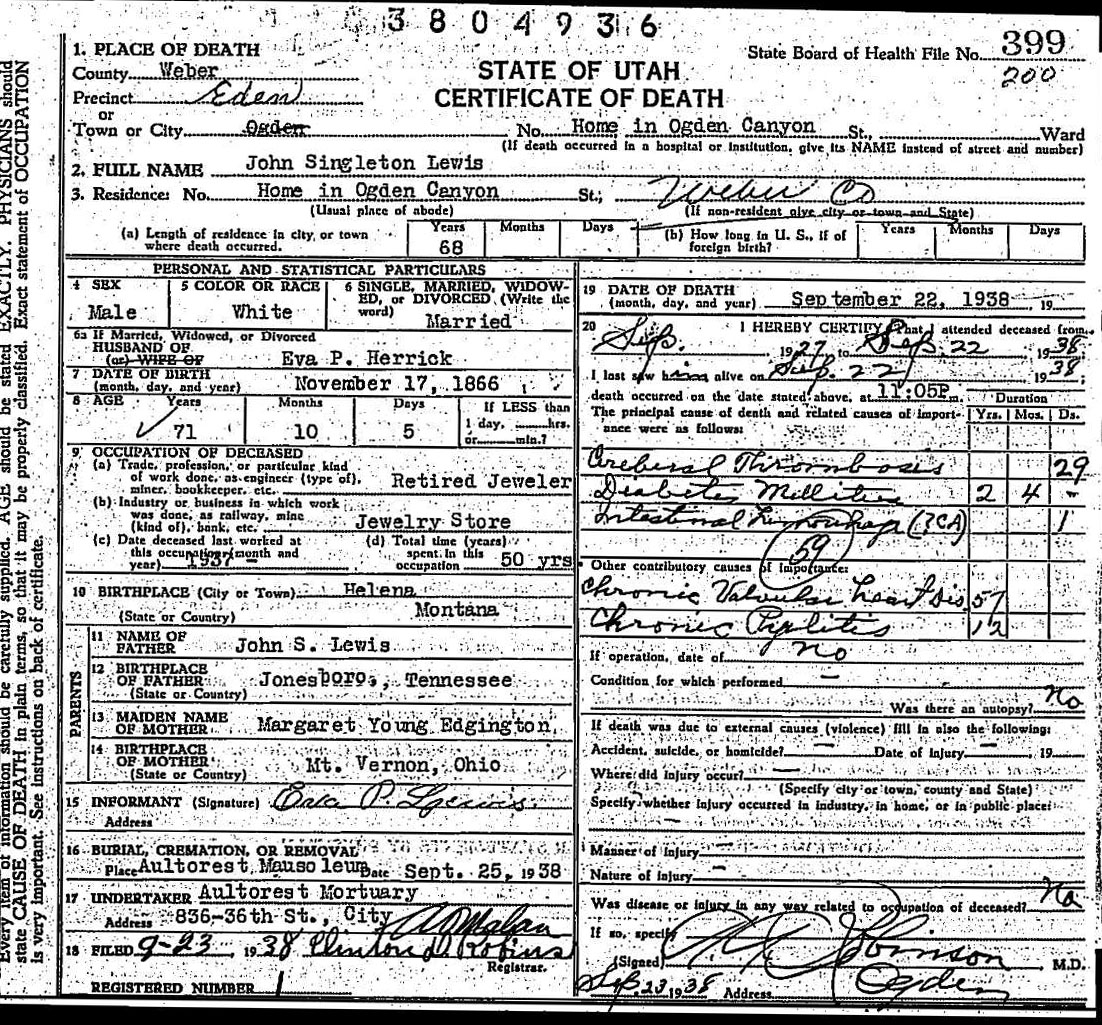 3804936
1. PLACE OF DEATH
State Board of Health File No. 399
200
County Weber
STATE OF UTAH
Precinct Eden
CERTIFICATE OF DEATH
or
Town or City Ogden No. Home in Ogden Canyon St., Ward
(If death occurred in a hospital or institution, give its NAME instead of street and number)
2. FULL NAME John Singleton Lewis
3. Residence: No. Home in Ogden Canyon St.; Weber Co
(Usual place of abode) (If non-resident give city or town and State)
(a) Length of residence in city or town where death occurred. Years 68 Months Days
(b) How long in U. S., if of foreign birth? Years Months Days
PERSONAL AND STATISTICAL PARTICULARS
4 SEX Male
5 COLOR OR RACE White
6 SINGLE, MARRIED, WIDOWED, or DIVORCED (Write the word) Married
6a If Married, Widowed, or Divorced
HUSBAND OF
(or) WIFE OF Eva P. Herrick
7 DATE OF BIRTH
(month, day, and year) November 17, 1866
8 AGE Years 71 Months 10 Days 5
If LESS than
1 day, hrs.
or min.?
9 OCCUPATION OF DECEASED
(a) Trade, profession, or particular kind
of work done, as engineer (type of),
miner, bookkeeper, etc. Retired Jeweler
(b) Industry or business in which work
was done, as railway, mine
(kind of), bank, etc. Jewelry Store
(c) Date deceased last worked at
this occupation (month and
year) 1937 -
(d) Total time (years)
spent in this
occupation 50 yrs
10 BIRTHPLACE (City or Town) Helena
(State or Country) Montana
PARENTS
11 NAME OF
FATHER John S. Lewis
12 BIRTHPLACE
OF FATHER Jonesboro, Tennessee
(State or Country)
13 MAIDEN NAME
OF MOTHER Margaret Young Edgington
14 BIRTHPLACE
OF MOTHER Mt. Vernon, Ohio
(State or Country)
15 INFORMANT (Signature) Eva P. Lewis
Address
16 BURIAL, CREMATION, OR REMOVAL
Place Aultorest Mausoleum Date Sept. 25, 1938
17 UNDERTAKER Aultorest Mortuary
Address 836-36th St., City
18 FILED 9-23, 1938 Clinton D. Robins
Registrar.
REGISTERED NUMBER 1
19 DATE OF DEATH
(month, day, and year) September 22, 1938 19
20 I HEREBY CERTIFY, That I attended deceased from
Sep. 1927 to Sep. 22 1938
I last saw him alive on Sep. 22 1938;
death occurred on the date stated above, at 11:05P m.
Duration
The principal cause of death and related causes of importance were as follows: Yrs. Mos. Ds.
Cerebral Thrombosis 29
Diabetes Mellitus 2 4 -
Intestinal Hemorrhage (?CA) 1
59
Other contributory causes of importance:
Chronic Valvular heart Dis 57
Chronic Pyelitis 12
If operation, date of no
Condition for which performed -
Was there an autopsy? no
If death was due to external causes (violence) fill in also the following:
Accident, suicide, or homicide? - Date of injury - , 19
Where did injury occur? -
(Specify city or town, county and State)
Specify whether injury occurred in industry, in home, or in public place:
-
Manner of injury -
Nature of injury -
Was disease or injury in any way related to occupation of deceased? No
If so, specify
(Signed) Johnson M.D.
Sep. 23 1938 Address Ogden
Every item of information should be carefully supplied. AGE should be stated EXACTLY. PHYSICIANS should
state CAUSE OF DEATH in plain terms, so that it may be properly classified. Exact statement of OCCUPATION
is very important. See instructions on back of certificate.